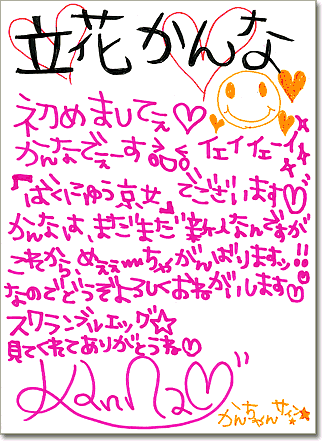 立花かんな
初めましてぇ♡
かんなでぇーす イェイイェーイ
『ばくにゅう京女』でございます♡
かんなは、まだまだ新人なんですが
これから、めぇぇ〜ちゃがんばりますッ!!
なのでどうぞよろしくおねがいします♡
スワランブルエッグ☆
見てくれてありがとうね♡
Kanna♡
かんちゃんサイン☆